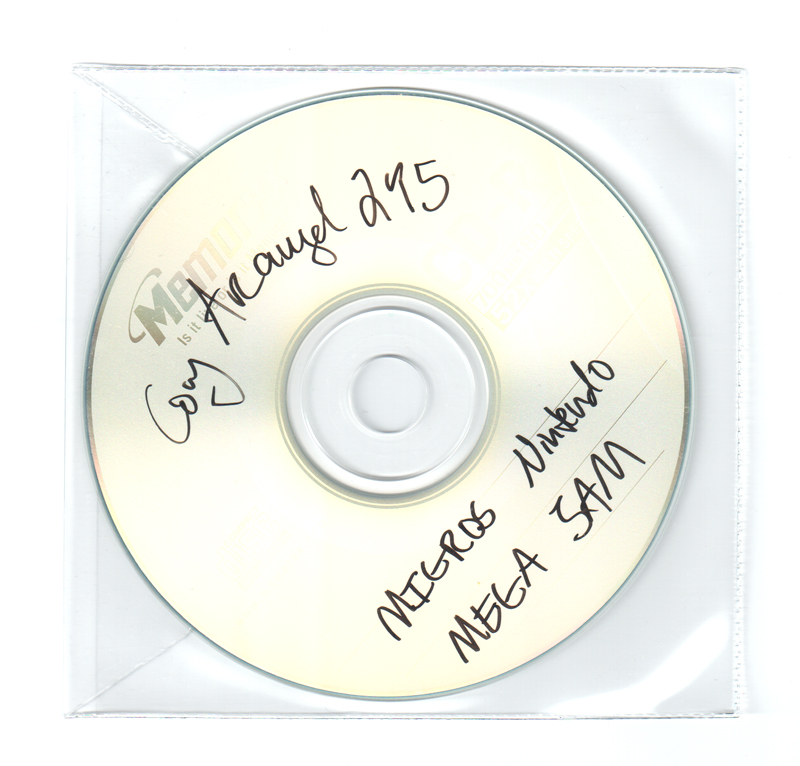 Cory Arcangel 2'45
Memo
Is it live o
MIGROS Nintendo
MEGA JAM